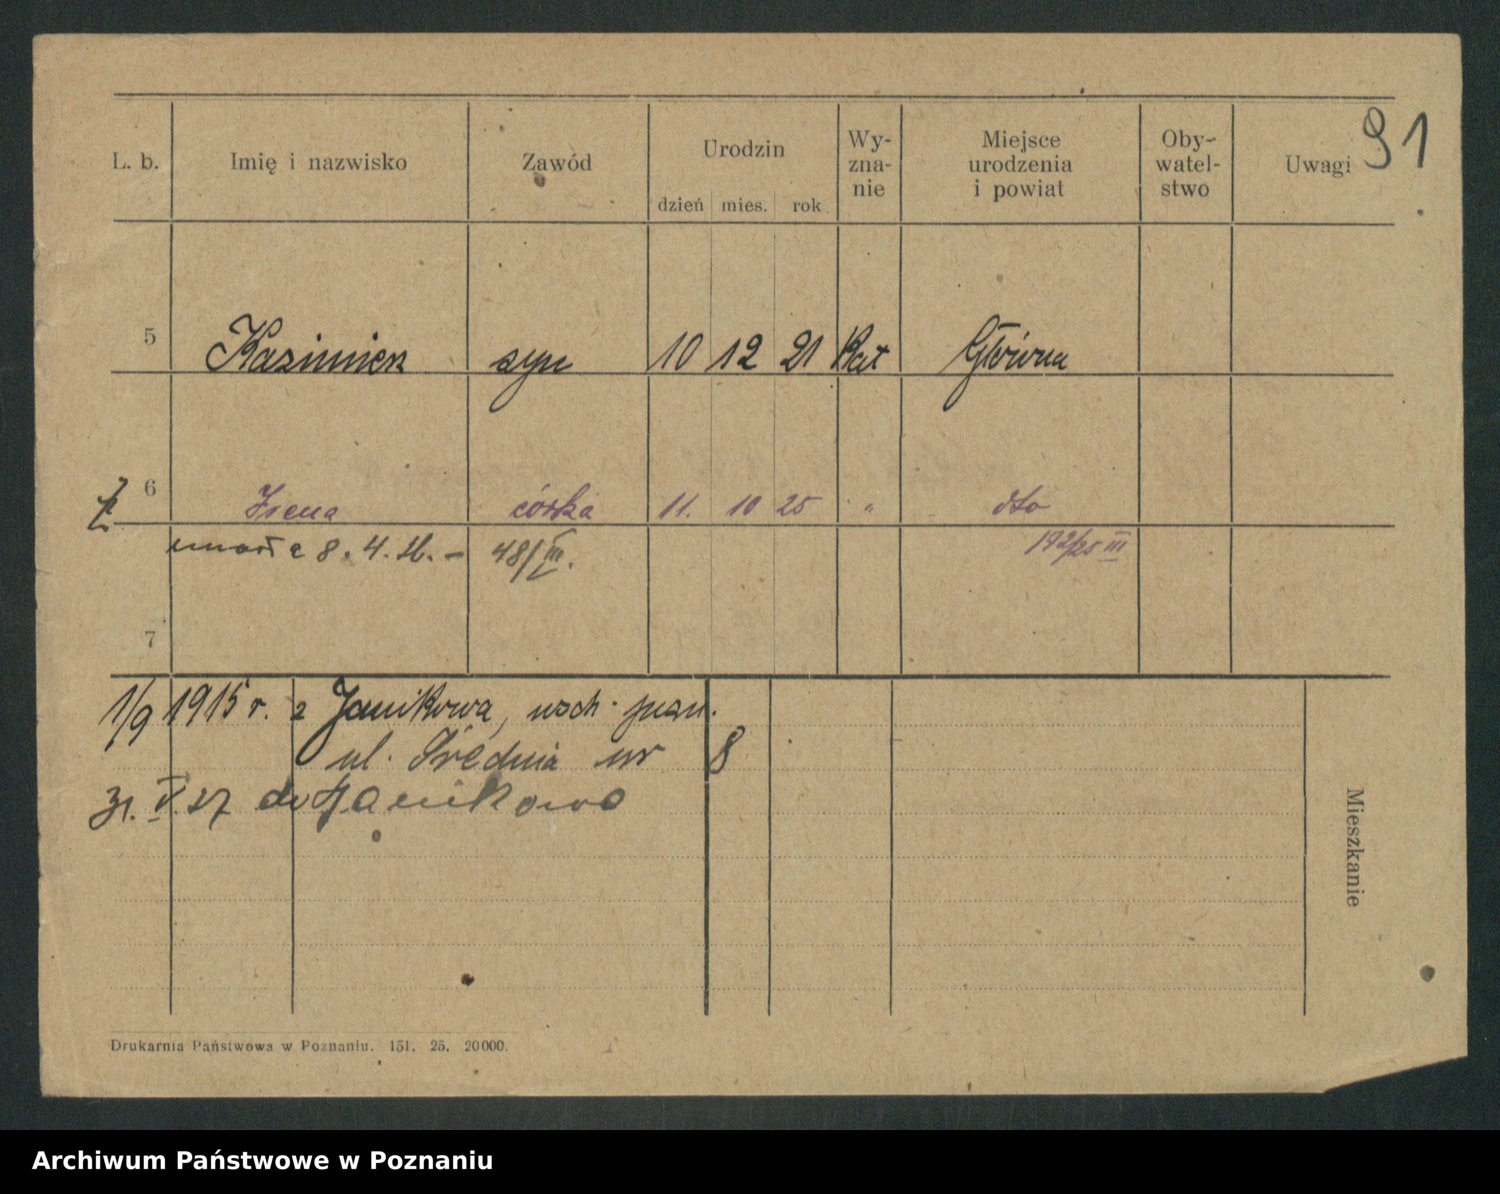 91
L. b. Imię i nazwisko Zawód Urodzin Wy-zna-nie Miejsce urodzenia i powiat Oby-watel-stwo Uwagi
dzień mies. rok
5 Kazimierz syn 10 12 21 Kat Główna
6 Irena córka 11. 10 25 " dto
umarła 8. 4. 26. – 48/III. 192/25 III
7
1/9 1915 r. z Janikowa, wsch. pozn.
ul. Średnia nr 8
31. V. 27 do Janikowo
Mieszkanie
Drukarnia Państwowa w Poznaniu. 151. 25. 20000.
Archiwum Państwowe w Poznaniu